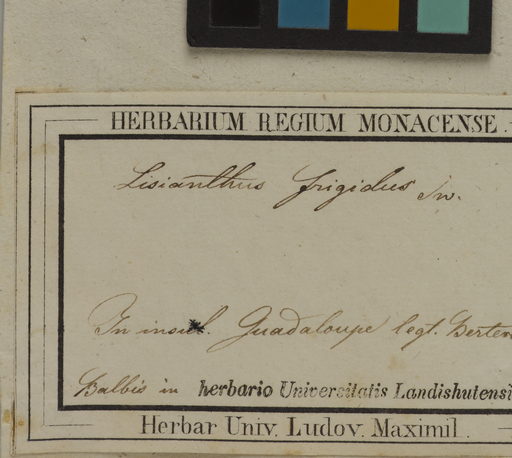 HERBARIUM REGIUM MONACENSE.
Lisianthus frigidus Sw.
In insul. Guadaloupe legt. Berter
Balbis in herbario Universitatis Landishutensi
Herbar Univ. Ludov. Maximil.